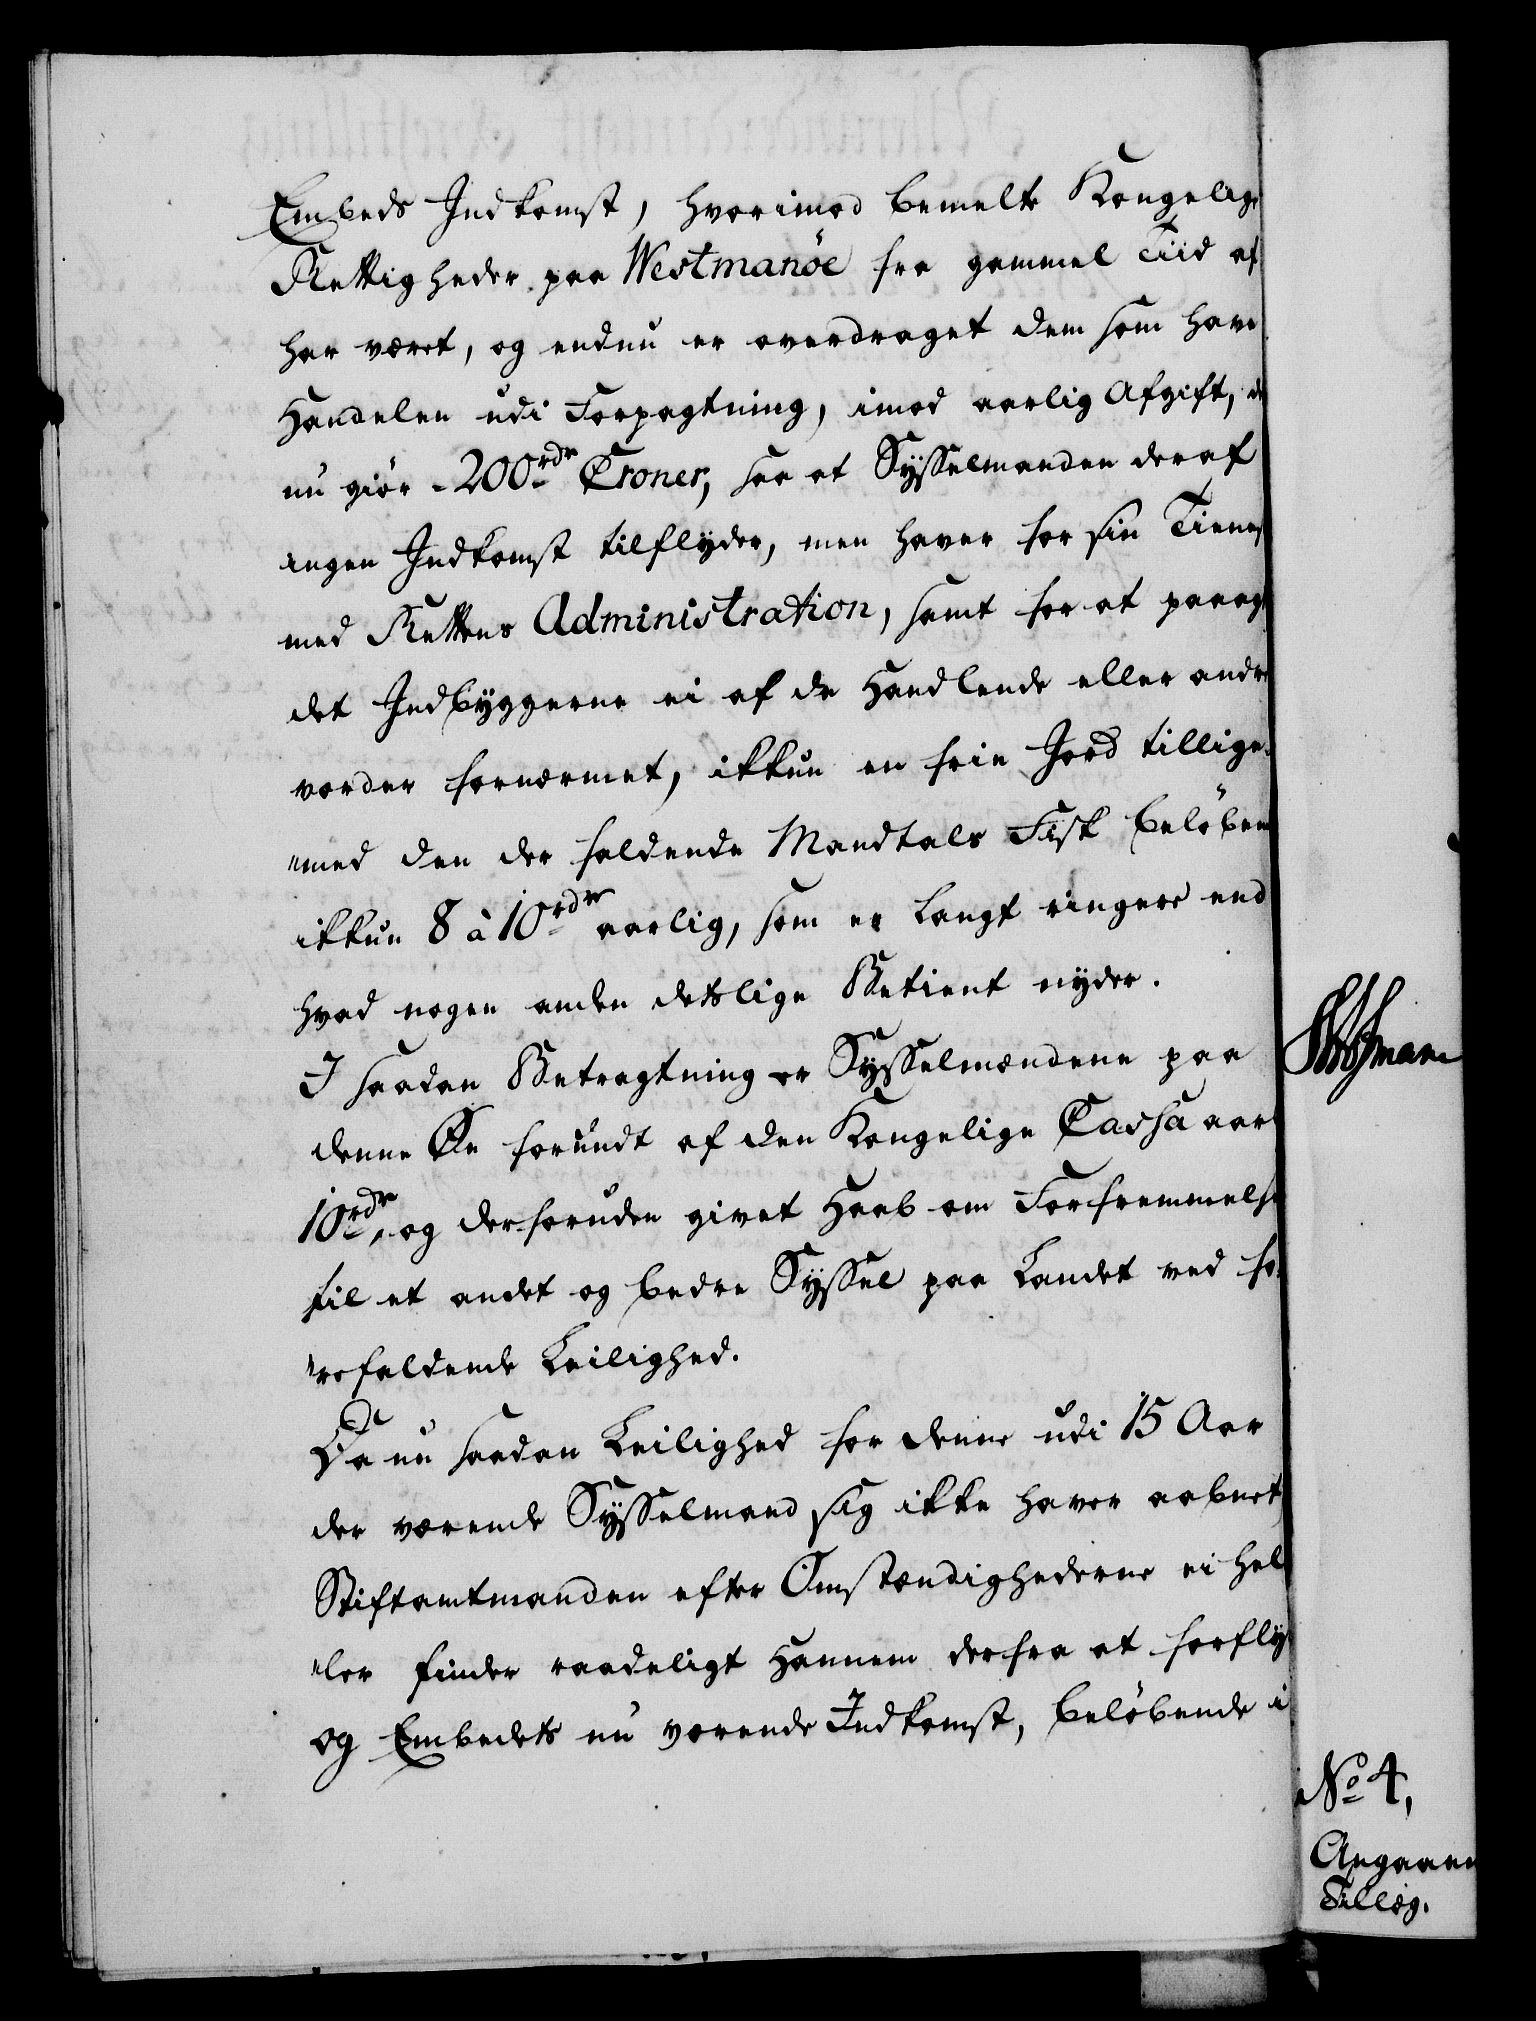 Embeds Indkomst, hvorimod bemelte Kongelige
Rettigheder paa Westmanöe fra gammel Tiid af
har været, og endnu er overdraget dem som have
Handelen udi Forpagtning, imod aarlig Afgift, d
nu giør 200 rdr Croner, saa at Sÿsselmanden deraf
ingen Indkomst tilflÿder, men haver for sin Tienes
med Rettens Administration, samt for at paaag
det Indbÿggerne ei af de Handlende eller andre
vorder fornærmet, ikkun en frie Jord tillige
"med den der faldende Mandtals Fisk belöben
ikkun 8 à 10 rdr aarlig, som er langt ringere end
hvad nogen anden detslige Betient nÿder.
I saadan Betragtning er Sÿsselmændene paa
denne Öe forundt af den Kongelige Cassa aar
10 rdr, og derforuden givet Haab om Forfremmelse
til et andet og bedre Sÿssel paa Landet ved fo
"refaldende Leilighed.
Da nu saadan Leilighed for denne udi 15 Aar
der værende Sÿsselmand sig ikke haver aabnet,
Stiftamtmanden efter Omstændighederne ei hel
"ler finder raadeligt Hannem derfra at forflÿ
og Embedets nu værende Indkomst, belöbende i
No 4,
Angaaen
Tillæg.